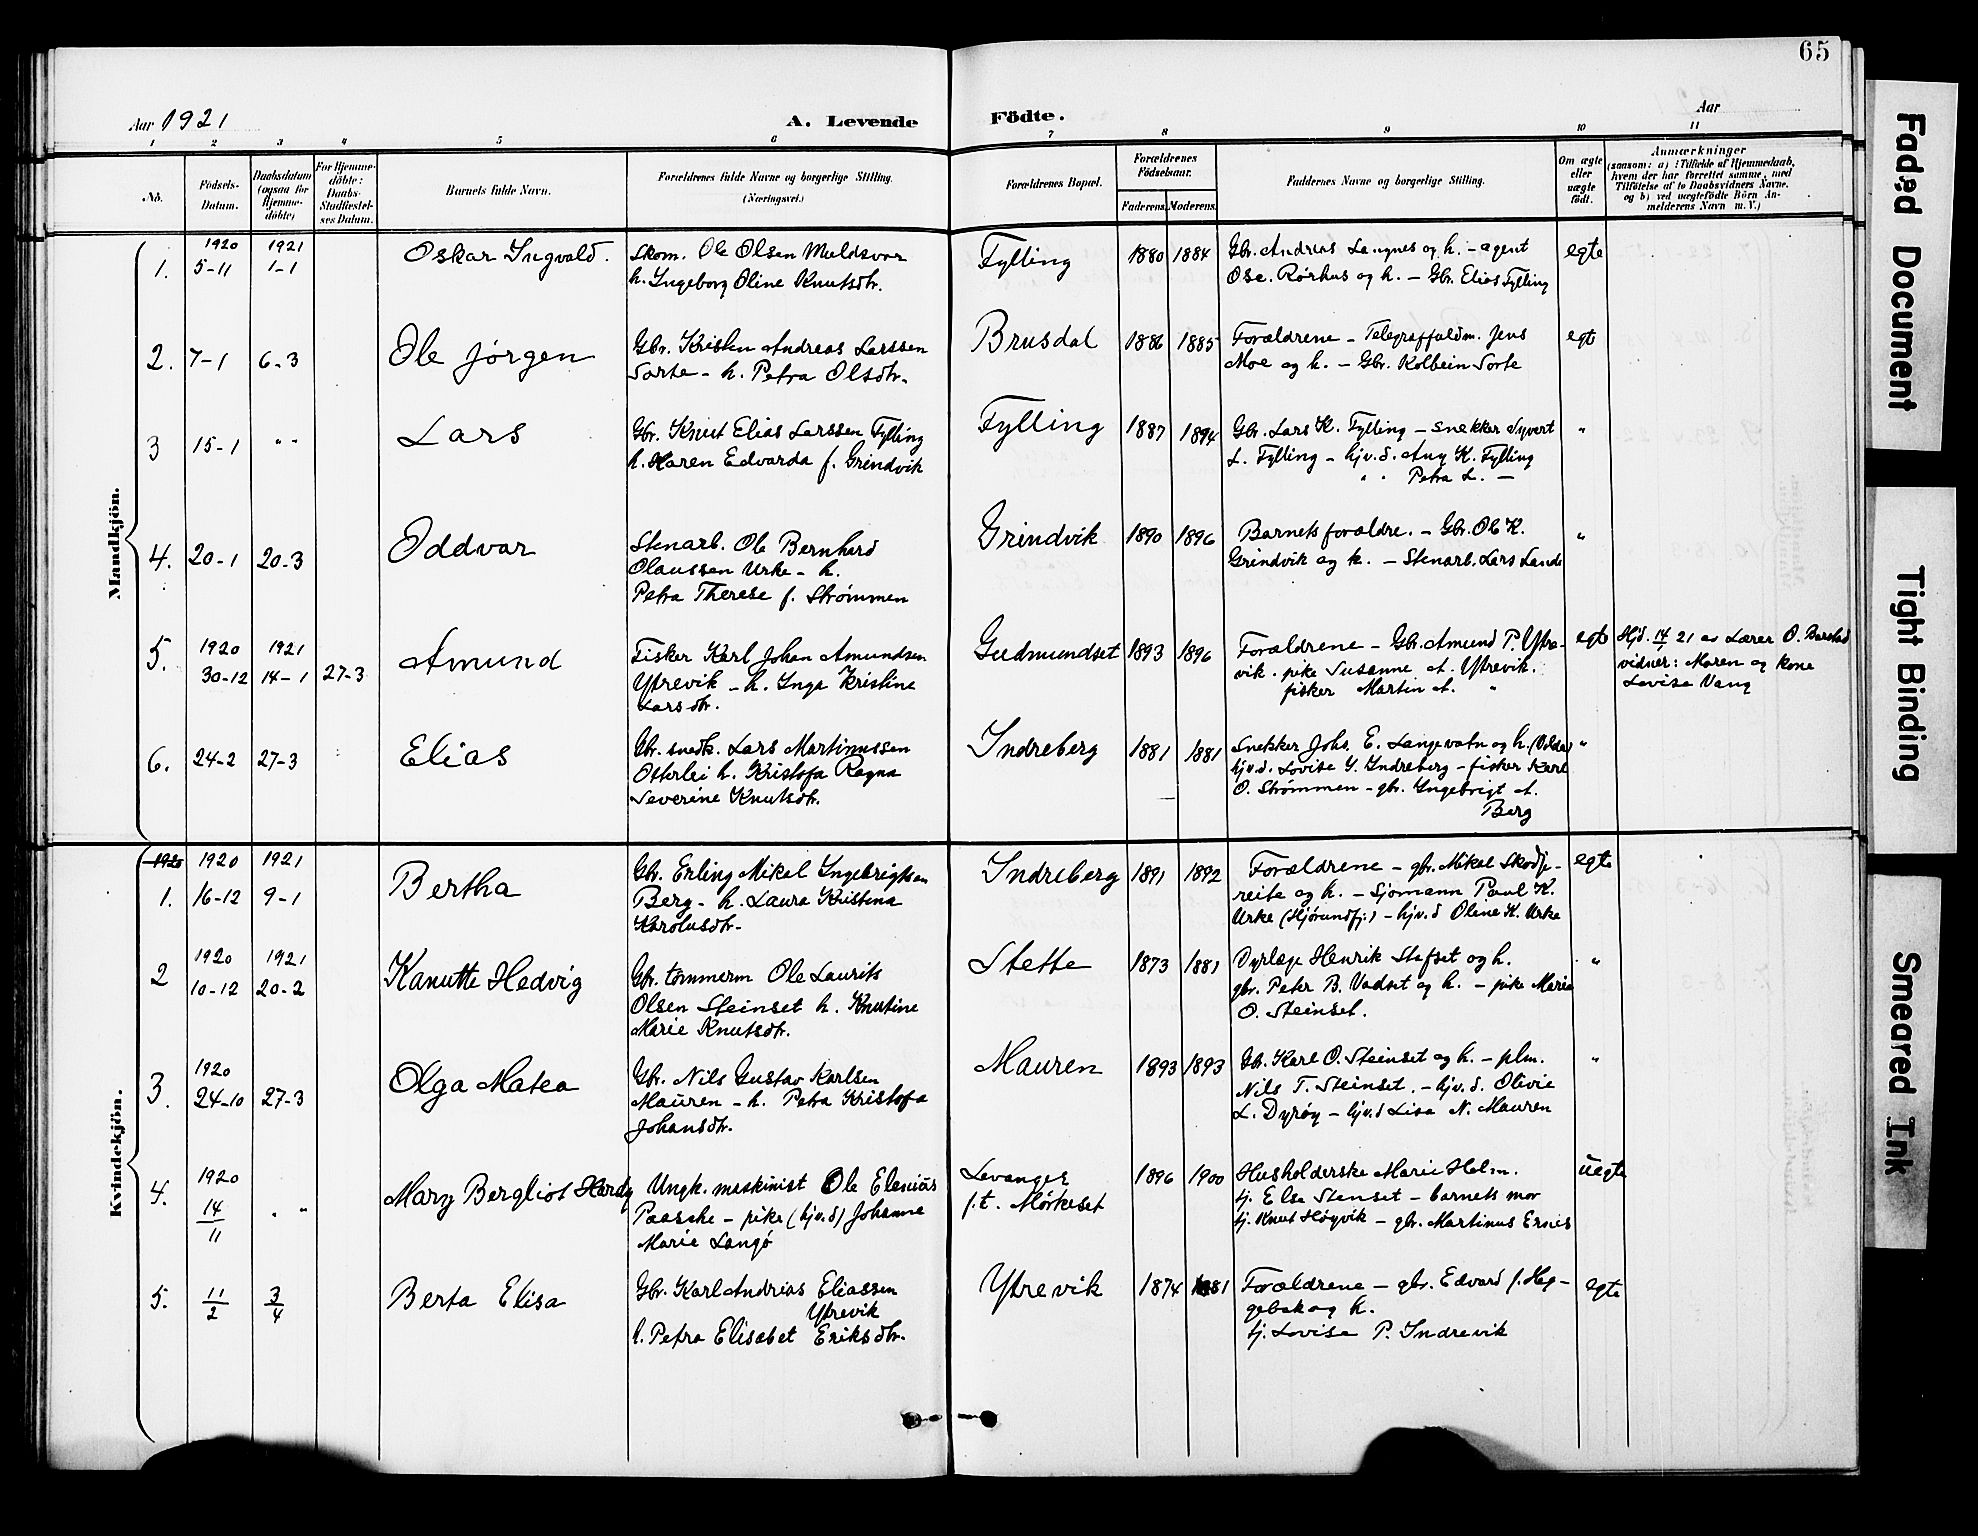 65
Aar 1921
A. Levende
Födte.
Aar
1 2 3 4 5 6 7 8 9 10 11
No.
Födsels-
Datum.
Daabsdatum
(ogsaa for
Hjemme-
döbte)
For Hjemme-
döbte:
Daabs-
Stadfæstel-
ses Datum.
Barnets fulde Navn.
Forældrenes fulde Navne og borgerlige Stilling.
(Næringsvei.)
Forældrenes Bopæl.
Forældrenes
Födselsaar.
Faderens.
Moderens.
Faddernes Navne og borgerlige Stilling.
Om ægte
eller
uægte
födt.
Anmærkninger
(saasom: a) i Tilfælde af Hjemmedaab,
hvem der har forrettet samme, med
Tilföielse af to Daabsvidners Navne.
og b) ved uægtefödte Börn An-
melderens Navn m. V.)
Mandkjön.
1.
1920
5-11
1921
1-1
Oskar Ingvald.
Skom. Ole Olsen Muldsvor
h. Ingeborg Oline Knutsdtr.
Fylling
1880
1884
Gbr. Andreas Langnes og h. - agent
Osc. Rørhus og h. - Gbr. Elias Fylling
egte
2.
7-1
6-3
Ole Jørgen
Gbr. Kristen Andreas Larssen
Sorte - h. Petra Olsdtr.
Brusdal
1886
1885
Forældrene - Telegraffuldm. Jens
Moe og h. - Gbr. Kolbein Sorte
egte
3
15-1
" "
Lars
Gbr. Knut Elias Larssen Fylling
h. Karen Edvarda f. Grindvik
Fylling
1887
1894
Gbr. Lars K. Fylling - snekker Syvert
L. Fylling - hjv.d. Any K. Fylling
" " Petra L. -
"
4.
20-1
20-3
Oddvar
Stenarb. Ole Bernhard
Olaussen Urke - h.
Petra Therese f. Strømmen
Grindvik
1890
1896
Barnets forældre. - Gbr. Ole K.
Grindvik og h. - Stenarb. Lars Lande
"
5.
1920
30-12
1921
14-1
27-3
Amund
Fisker Karl Johan Amundsen
Ytrevik - h. Inga Kristine
Larsdtr.
Gudmundset
1893
1896
Forældrene - Gbr. Amund P. Ytre-
vik. pike Susanne A. Ytrevik.
fisker Martin A. "
egte
Hjd. 14/1 21 av Lærer O. Barstad
vidner: Maren og kone
Lovise Vang
6.
24-2
27-3
Elias
Gbr. snedk. Lars Martinussen
Osterlei h. Kristofa Ragna
Severine Knutsdtr.
Indreberg
1881
1881
Snekker Johs. E. Langevatn og h. (Volda)
hjv.d. Lovise Y. Indreberg - fisker Karl
O. Strømmen - gbr. Ingebrigt A.
Berg
"
Kvindekjön.
1920
1.
1920
16-12
1921
9-1
Bertha
Gbr. Erling Mikal Ingebrigtsen
Berg - h. Laura Kristina
Karolusdtr.
Indreberg
1891
1892
Forældrene - gbr. Mikal Skodje-
reite og h. - Sjømann Paul K.
Urke (Hjørundfj.) - hjv.d Oline K. Urke
egte
2
1920
10-12
1921
20-2
Kanutte Hedvig
Gbr. tømmerm Ole Laurits
Olsen Steinset h. Knutine
Marie Knutsdtr.
Stette
1873
1881
Dyrlæge Henrik Stafset og h.
gbr. Peter B. Vadset og h. - pike Marie
O. Steinset.
"
3.
1920
24-10
27-3
Olga Matea
Gbr. Nils Gustav Karlsen
Mauren - h. Petra Kristofa
Johansdtr.
Mauren
1893
1893
Gbr. Karl O. Steinset og h. - plm.
Nils T. Steinset. - hjv.d. Olivie
L. Dyrøy - hjv.d Lisa N. Mauren
"
4.
1920
14/11
" "
Mary Bergliot Hardy
Ungk. maskinist Ole Elenius
Paasche - pike (hjv.d) Johanne
Marie Langø
Levanger
f.t. Mørkeset
1896
1900
Husholderske Marie Holm.
tj. Else Stenset - barnets mor
tj. Knut Høgvik - gbr. Martinus Ernes
uegte
5.
11/2
3/4
Berta Elisa
Gbr. Karl Andrias Eliassen
Ytrevik
h. Petra Elisabet Eriksdtr.
Ytrevik
1874
1881
Forældrene - gbr. Edvard J. Hag-
gebak og h.
tj. Lovise P. Indrevik
egte
Faded Document
Tight Binding
Smeared Ink